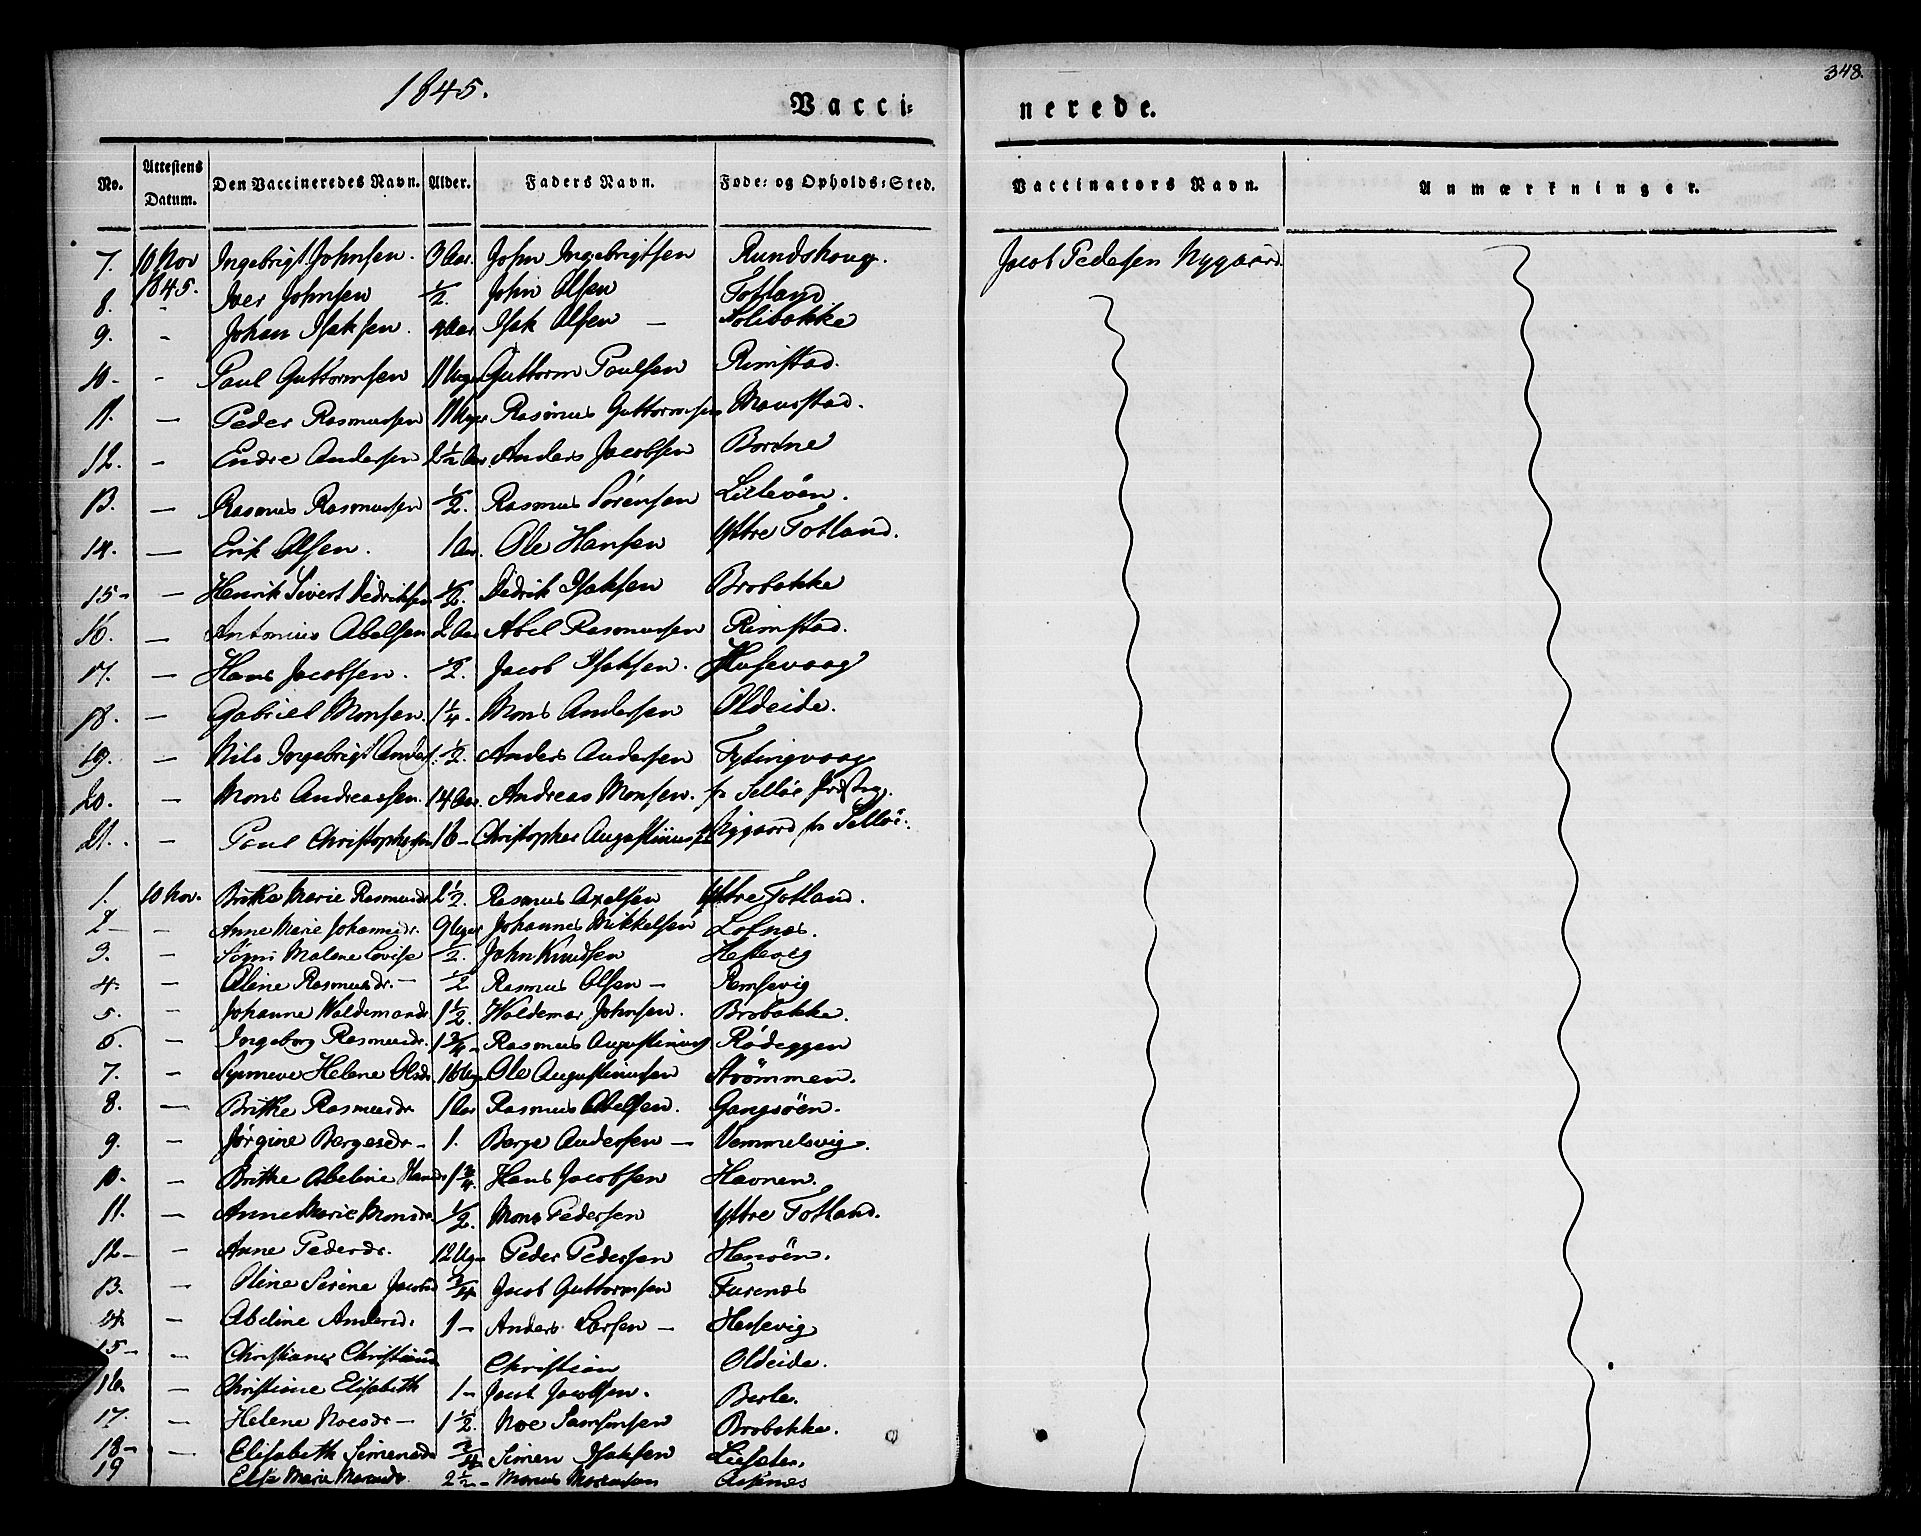 1845.
348.
Vacci=
nerede.
No. Attestens Datum. Den Vaccineredes Navn. Alder. Faders Navn. Føde= og Opholds=Sted. Vaccinators Navn. Anmærkninger.
7. 10 Nov 1845. Ingebrigt Johnsen. 3 Aar. John Ingebrigtsen Rundskoug. Jacob Pedersen Nygaard.
8. - Iver Johnsen 1/2. John Olsen Totland
9. - Johan Isaksen. 4 Aar Isak Olsen - Holibakke
10- - Paul Guttormsen 11 Uger Guttorm Paulsen Rimstad.
11. - Peder Rasmussen 11 Uger Rasmus Guttormsen Maurstad.
12. - Endre Andersen 2 1/2 Aar. Anders Jacobsen Bortne
13. - Rasmus Rasmussen 1/2. Rasmus Sörensen Lilleöen.
14. - Erik Olsen. 1 Aar. Ole Hansen Yttre Totland.
15- - Henrik Sivert Didriksen 1/2. Didrik Isaksen Brobakke
16. - Antonius Abelsen 2 Aar Abel Rasmussen Rimstad.
17. - Hans Jacobsen. 1/2. Jacob Isaksen. Husevaag
18. - Gabriel Monsen. 1 1/4. Mons Andersen Oldeide.
19. - Nils Ingebrigt Anders. 1/2. Anders Andersen Fytingvaag
20. - Mons Andreassen. 14 Aar. Andreas Monsen. fr Selløe
21. - Paul Christophersen 16- Christopher Augustinussen Nygaard fr Selløe.
1. 10 Nov. Brithe Marie Rasmusdr 2 1/2. Rasmus Axelsen Yttre Totland.
2- - Anne Marie Johannesdr. 9 Uger Johannes Mikkelsen Lofnæs.
3. - Malene Lovise 1/2. John Knudsen Hessevig
4- - Oline Rasmusdr. - 1/2 Rasmus Olsen - Remsevig
5. - Johanne Waldemarsdr 1 1/2. Waldemar Johnsen. Brobakke.
6. - Ingeborg Rasmusdr. 1 3/4- Rasmus Augustinus Rödeggen
7. - Synneve Helene Olsdr. 16 Uger Ole Augustinusen Strömmen.
8. - Brithe Rasmusdr 1 Aar Rasmus Abelsen. Gangsöen.
9. - Jørgine Børgesdr- 1. Børge Andersen - Vemmelsvig.
10. - Brithe Abeline Hansdr 1 3/4. Hans Jacobsen Havnen.
11. - Anne Marie Monsdr. 1/2. Mons Pedersen Yttre Totland.
12- - Anne Pedersdr. 12 Uger Peder Pedersen Hennöen.
13. - Oline Serine Jacobsd 3/4 Jacob Guttormsen Furenæs
14. - Abeline Andersd. 1- Anders Larsen - Hessevig
15- - Christiane Christiansd Christian Oldeide.
16. - Christine Elisabeth 1- Jacob Jacobsen. Berle.
17. - Helene Noesdr - 1 1/2. Noe Samsonsen Brobakke.
18- - Elisabeth Simensdr 3/4. Simen Isaksen Liisæter.
19 Else Marie Monsdr 2 1/2- Askenæs